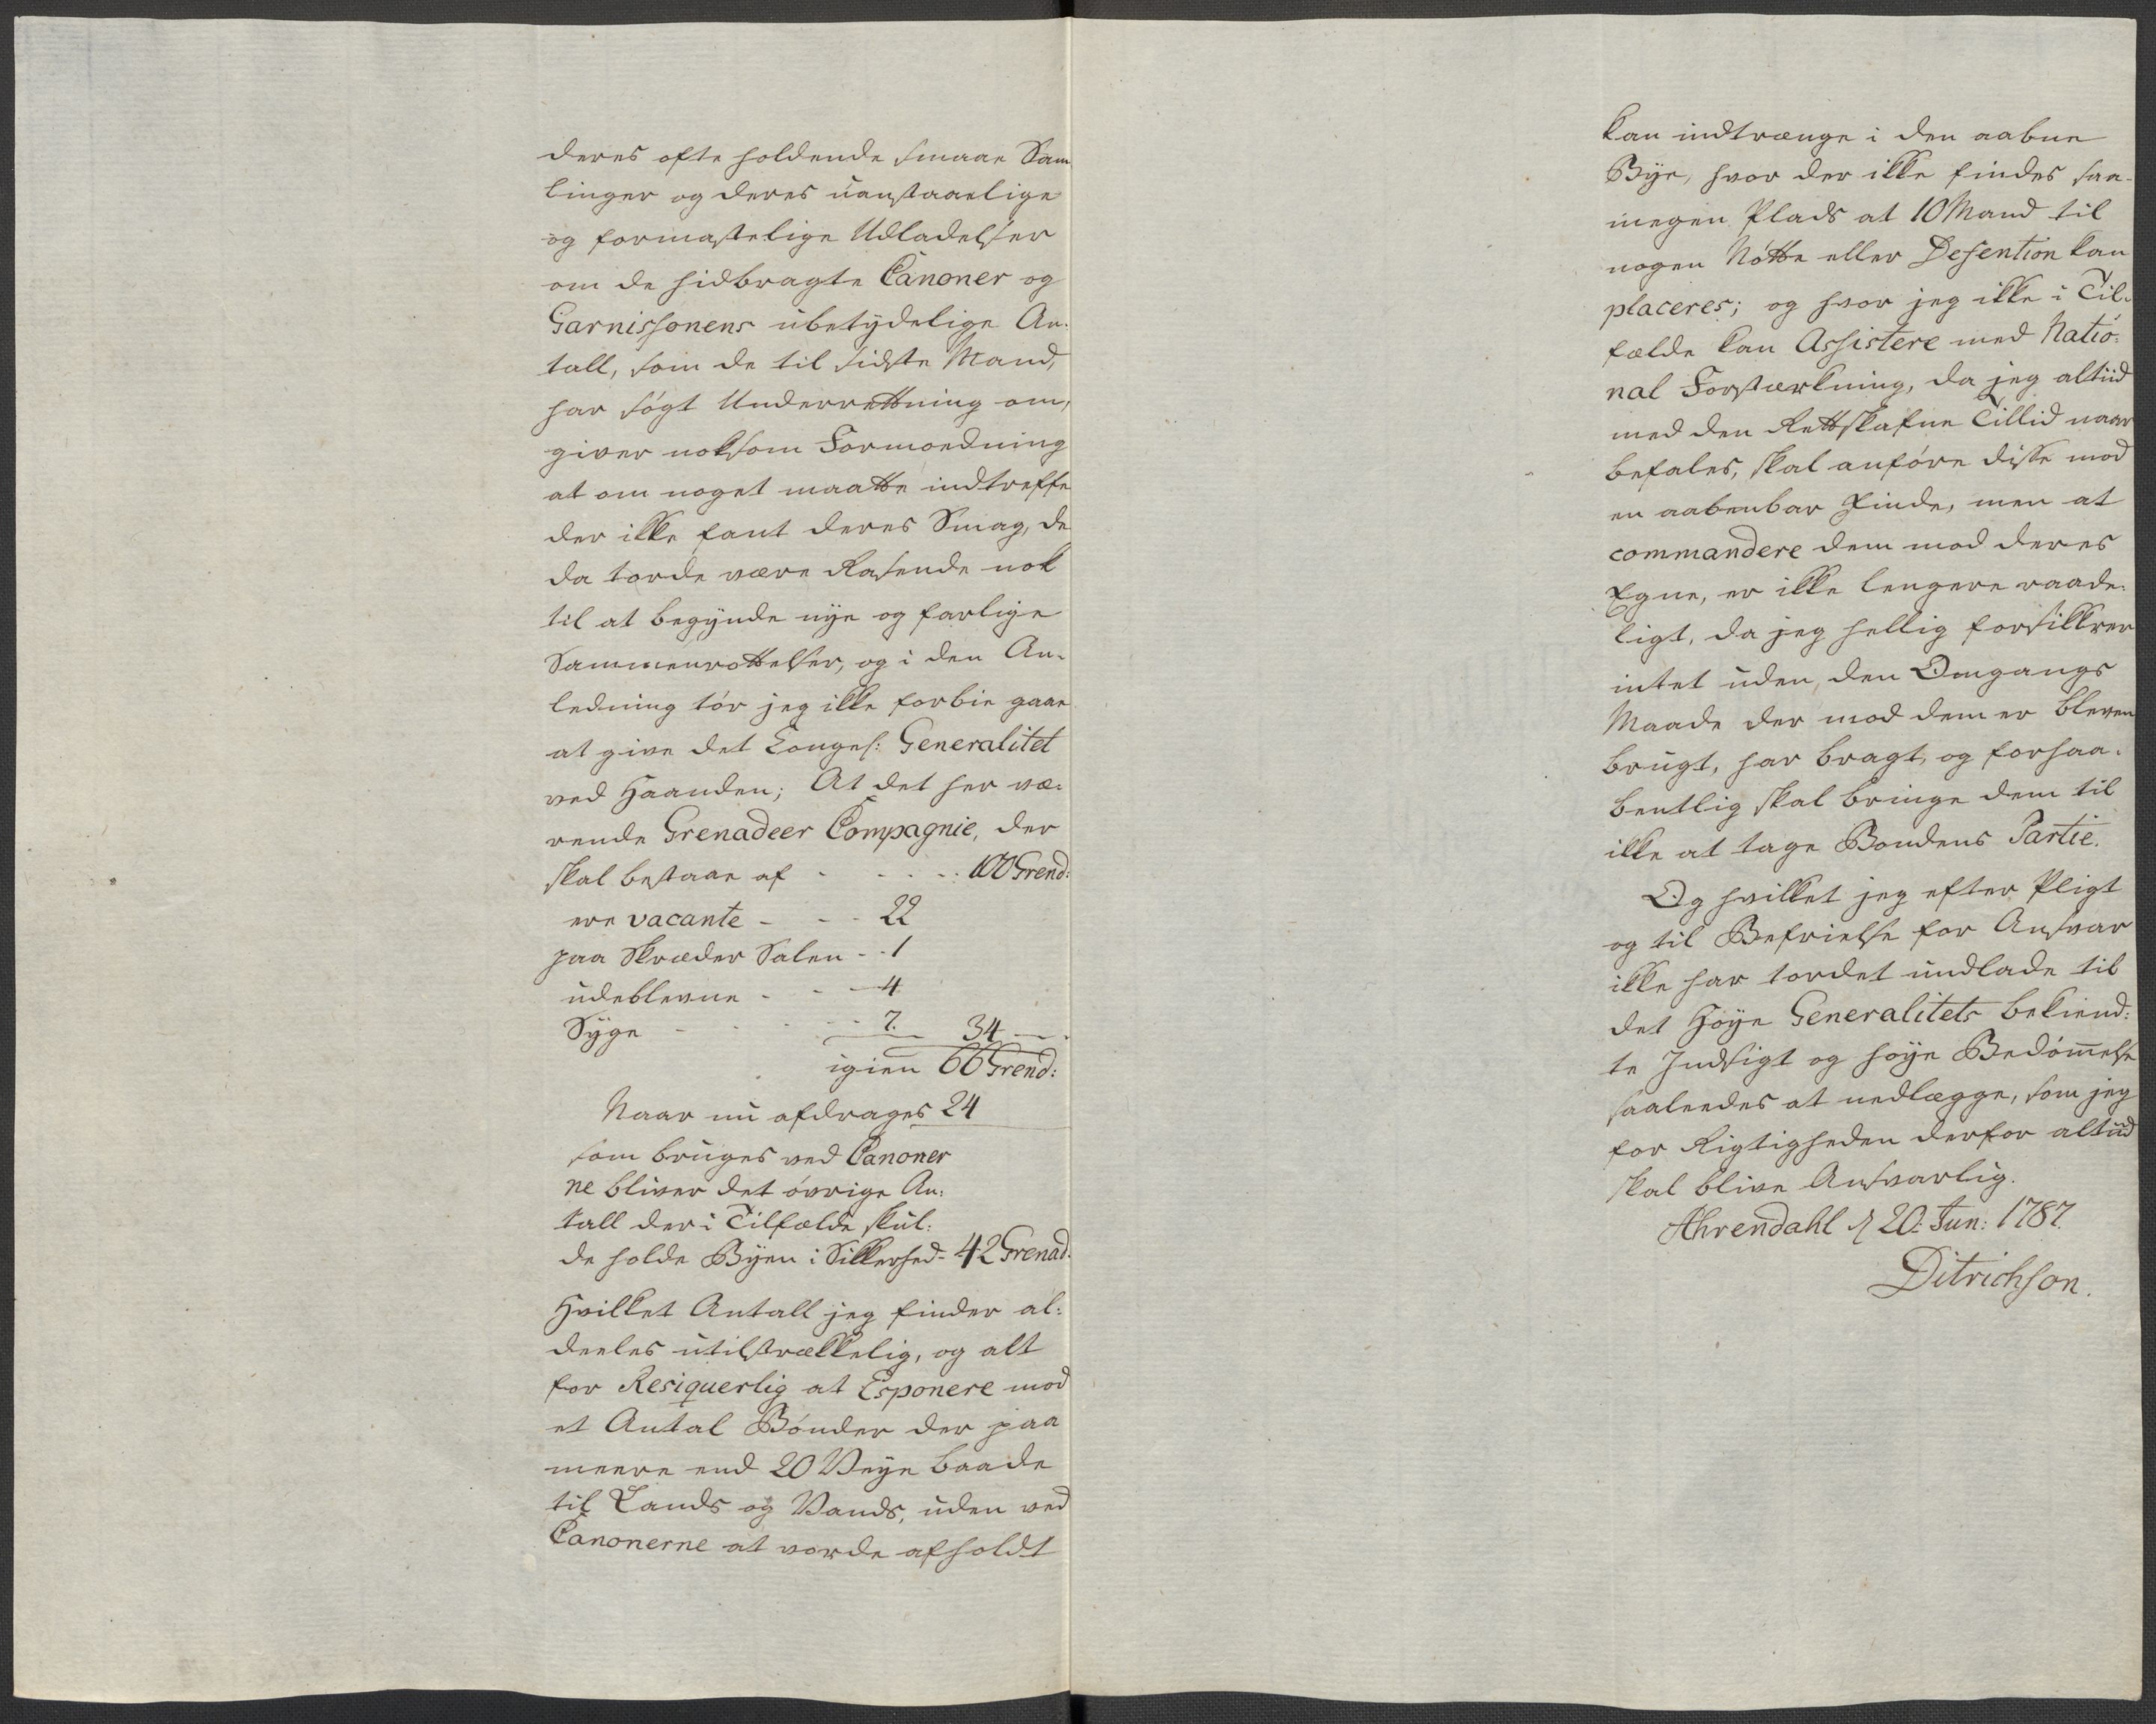 deres ofte holdende smaae Sam
linger og deres uanstaaelige
og formastelige Udladelser
om de hidbragte Canoner og
Garnissonens ubetydelige An-
tall, som de til sidste Mand,
har søgt Underrettning om,
giver noksom Formoedning
at om noget maatte indtreffe
der ikke fant deres Smag, de
da torde være Rasende nok
til at begynde nye og farlige
Sammenrottelser, og i den An-
ledning tør jeg ikke forbie gaae
at give det Konges: Generalitet
ved Haanden; At det her væ-
rende Grenadeer Compagnie, der
skal bestaae af - - - - 100 Grend:
ere vacante - - - 22
paa Skræder Salen - - 1
udeblevne - - - 4
Syge - - - - 7. 34 -
igien 66 Grend:
Naar nu afdrages 24
som bruges ved Canoner
ne bliver det øvrige An-
tall der i Tilfælde skul-
de holde Byen i Sikkerhed - 42 Grenad:
Hvilket Antall jeg finder al-
deeles utilstrækkelig, og alt
for Resiquerlig at Esponere mod
et Antal Bønder der paa
meere end 20 Veye baade
til Lands og Vands, uden ved
Canonerne at vorde afholdt
kan indtrænge i den aabne
Bye, hvor der ikke findes saa-
megen Plads at 10 Mand til
nogen Nøtte eller Defention kan
placeres; og hvor jeg ikke i Til-
fælde kan Assistere med Natio-
nal Forstærkning, da jeg altiid
med den Rettskafne Tillid naar
befales, skal anføre disse mod
en aabenbar Fiende, men at
commandere dem mod deres
Egne, er ikke lengere raade-
ligt, da jeg hellig forsikkrer
intet uden den Omgangs
Maade der mod dem er bleven
brugt, har bragt, og forhaa-
bentlig skal bringe dem til
ikke at tage Bondens Partie.
Og hvilket jeg efter Pligt
og til Befrielse for Ansvar
ikke har tordet undlade til
det Høye Generalitets bekiend-
te Indsigt og høye Bedømmelse
saaleedes at nedlægge, som jeg
for Rigtigheden derfor altiid
skal blive Ansvarlig.
Ahrendahl d 20: Jun: 1787.
Ditrichson.